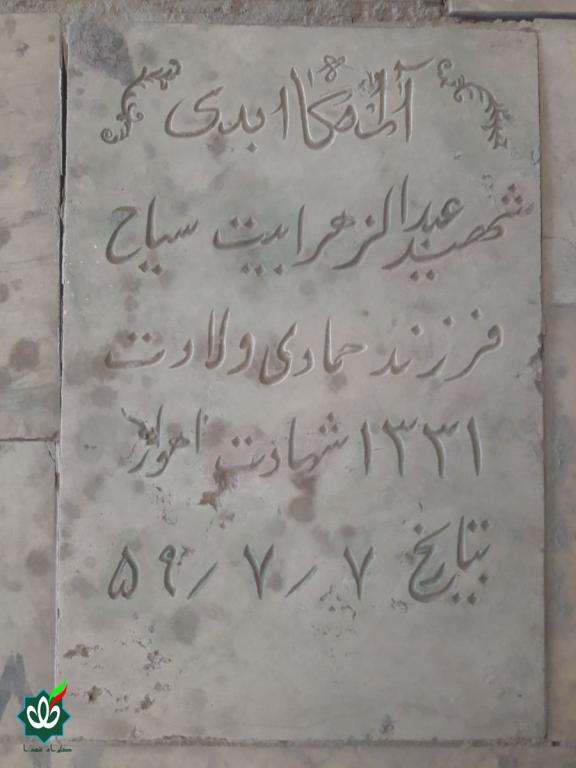 آرامگاه ابدی
شهید عبدالزهرا بیت سیاح
فرزند حمادی ولادت
۱۳۳۱ شهادت اهواز
بتاریخ ۷ / ۷ / ۵۹